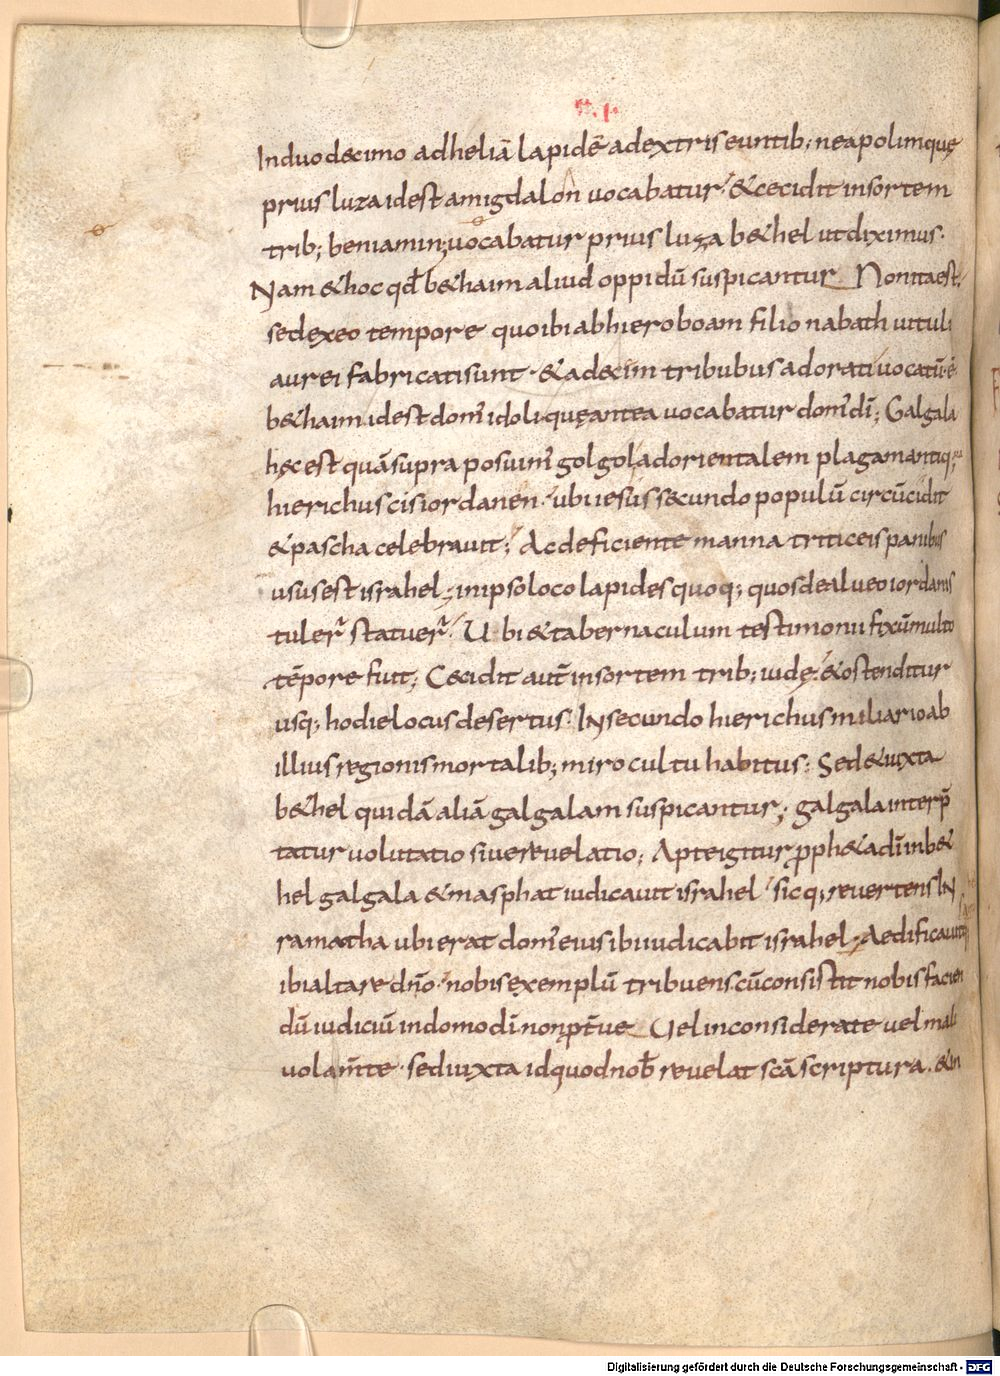 Induodecimo adheliā lapidē adextris euntib; neapolimque
prius luza idest amigdalon vocabatur &cecidit insortem
trib; beniamin; vocabatur prius luza b&hel utdiximus.
Nam &hoc qđ b&haim aliud oppidū suspicantur Nonitaest.
sedexeo tempore quoibi abhieroboam filio nabath vituli
aurei fabricatisunt &adecim tribubus adorati vocatūē
b&haim idest dom' idoli quęantea vocabatur dom' dī; Galgala
hęc est quāsupra posuim' golgol adorientalem plagam antiq;
hierichus cis iordanen. ubi iesus secundo populū circūcidit
&pascha celebravit; Acdeficiente manna triticeis panibus
usus est israhel; inipsoloco lapides quoq; quos dealveo iordanis
tuler̄ statuer̄. Ubi &tabernaculum testimonii fixūmulto
tēpore fuit; Cecidit aut̄ insortem trib; iudę. &ostenditur
usq; hodie locus desertus. INsecundo hierichus miliario ab
illius regionis mortalib; miro cultu habitus: Sed &iuxta
b&hel quidā aliā galgalam suspicantur; galgala interp̄
tatur volutatio sive revelatio; Apte igitur pph&a dī inb&
hel galgala &masphat iudicavit israhel sicq; revertens IN
ramatha ubi erat dom' eius ibi iudicabit israhel; Aedificavit
ibialtare dn̄o nobis exemplū tribuens. cūconsistit nobis facien
dū iudiciū indomo dī non Uel inconsiderate vel mali
volam̄te. sed iuxta id quod nob̄ revelat scā scriptura. &in
Digitalisierung gefördert durch die Deutsche Forschungsgemeinschaft - DFG